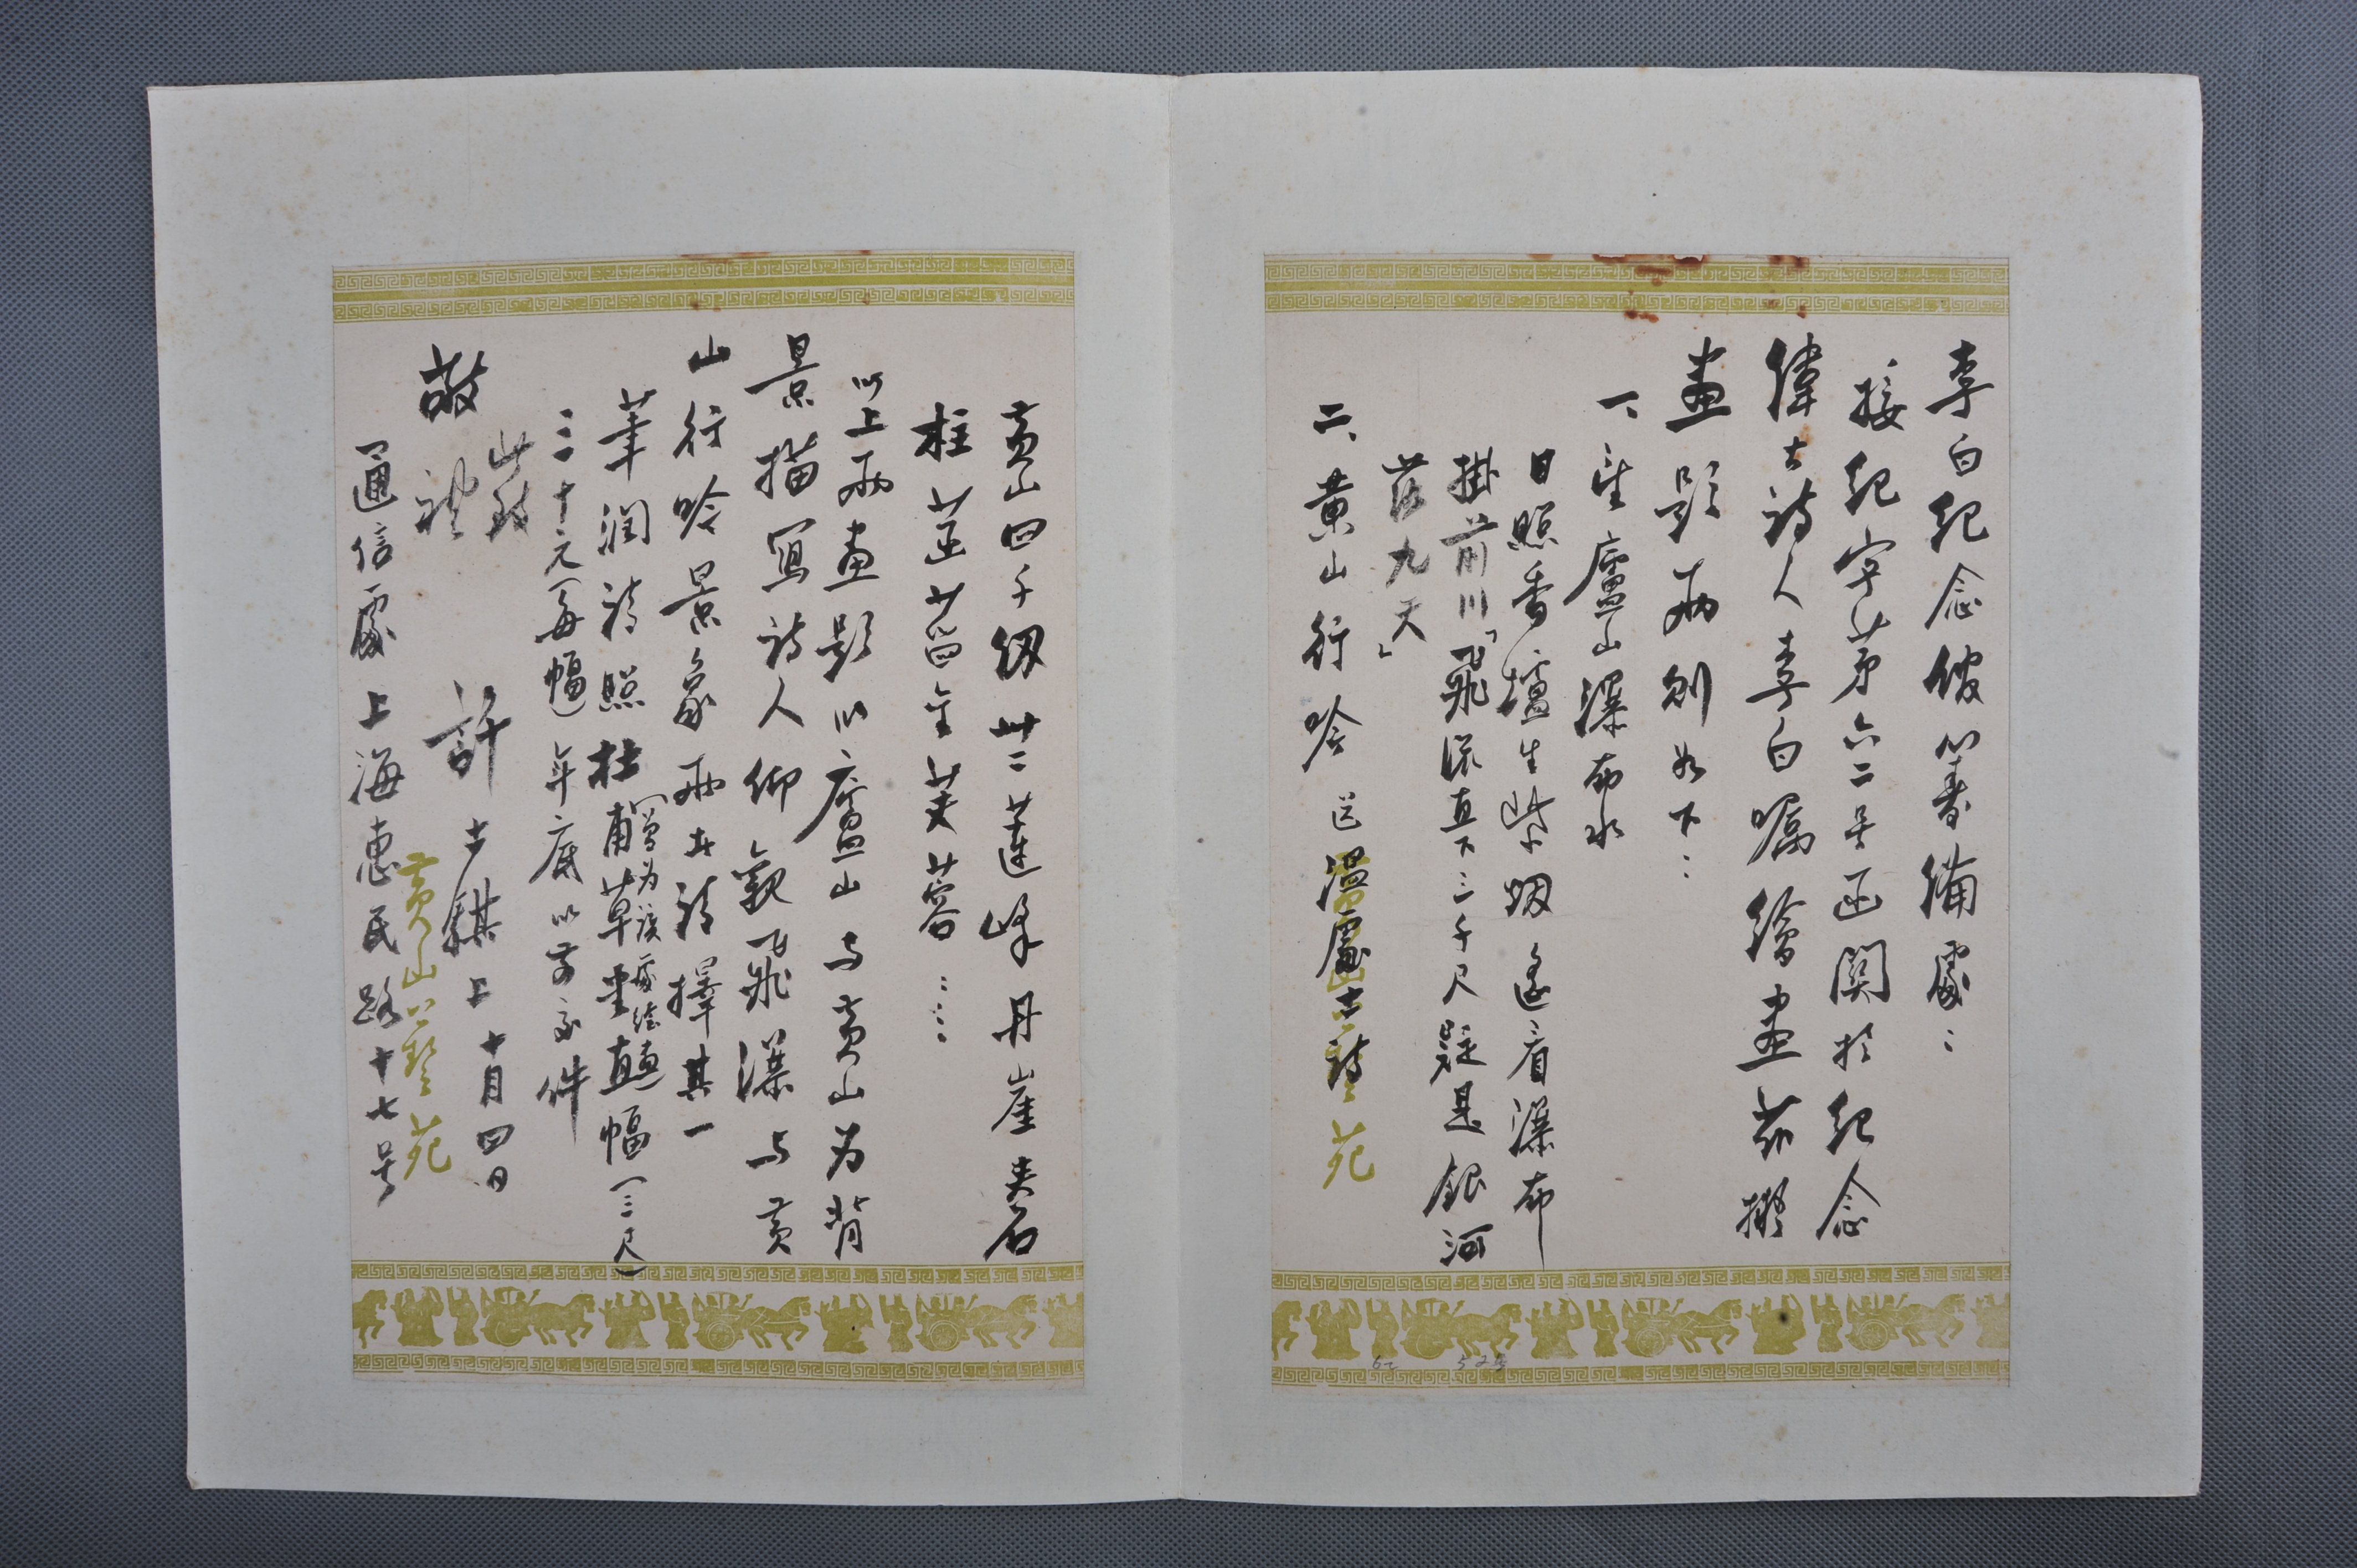 李白紀念館籌備處：
接紀字第六二号函關於紀念
偉大詩人李白嘱繪畫茲擬
畫題兩則如下：
一、望廬山瀑布水
日照香爐生紫烟遙看瀑布
掛前川「飛流直下三千尺疑是銀河
落九天」
二、黄山行吟 送温處士詩
黄山四千仞卅二蓮峰丹崖夹石
柱菡萏金芙蓉……
以上兩畫題以廬山与黄山为背
景描寫詩人仰觀飛瀑与黄
山行吟景象兩者請擇其一
筆润請照杜甫草堂直幅（三尺）
（曾为該處绘）
三十元一幅年底以前交件
此致
敬礼
許士騏上十月四日
通信處上海惠民路十七号
黄山藝苑
黄山藝苑
62 525